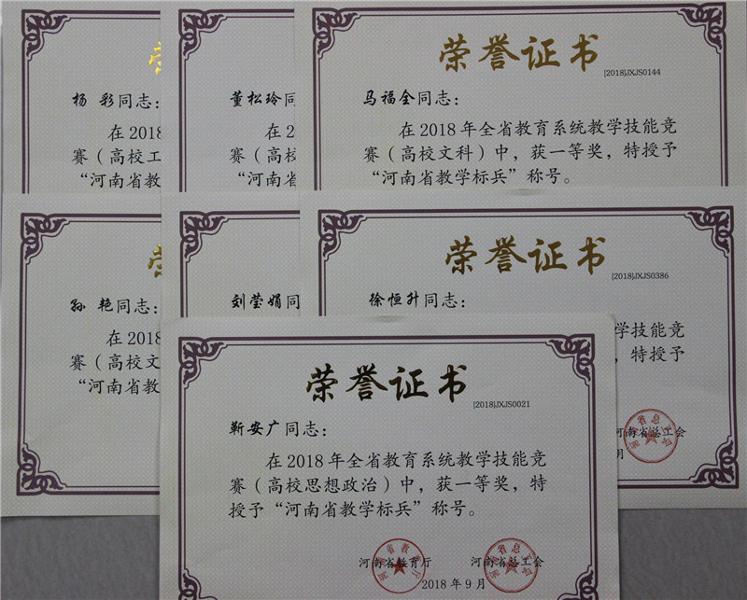 杨 彩同志：
在2018
赛（高校工
“河南省教
董松玲同
在2
赛（高校
“河南省
荣誉证书
[2018]JXJS0144
马福全同志：
在2018年全省教育系统教学技能竞
赛（高校文科）中，获一等奖，特授予
“河南省教学标兵”称号。
孙 艳同志：
在2018
赛（高校文
“河南省教
刘莹娟同
荣誉证书
[2018]JXJS0386
徐恒升同志：
学技能竞
，特授予
河南省总工会
月
荣誉证书
[2018]JXJS0021
靳安广同志：
在2018年全省教育系统教学技能竞
赛（高校思想政治）中，获一等奖，特
授予“河南省教学标兵”称号。
河南省教育厅 河南省总工会
2018年9月